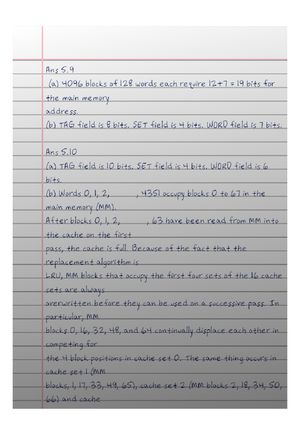 Ans 5.9
(a) 4096 blocks of 128 words each require 12+7 = 19 bits for
the main memory
address.
(b) TAG field is 8 bits. SET field is 4 bits. WORD field is 7 bits.
Ans 5.10
(a) TAG field is 10 bits. SET field is 4 bits. WORD field is 6
bits.
(b) Words 0, 1, 2, , 4351 occupy blocks 0 to 67 in the
main memory (MM).
After blocks 0, 1, 2, , 63 have been read from MM into
the cache on the first
pass, the cache is full. Because of the fact that the
replacement algorithm is
LRU, MM blocks that occupy the first four sets of the 16 cache
sets are always
overwritten before they can be used on a successive pass. In
particular, MM
blocks 0, 16, 32, 48, and 64 continually displace each other in
competing for
the 4 block positions in cache set 0. The same thing occurs in
cache set 1 (MM
blocks, 1, 17, 33, 49, 65), cache set 2 (MM blocks 2, 18, 34, 50,
66) and cache